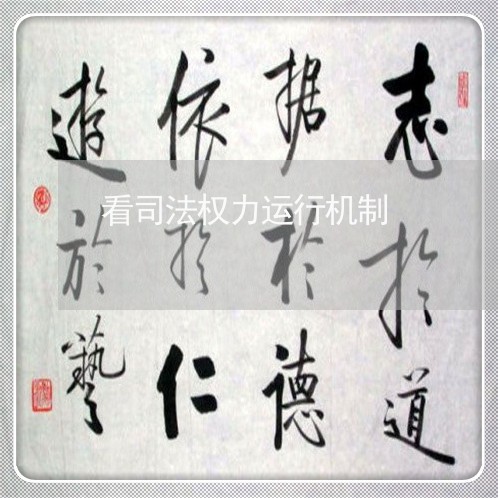 志於道
据於德
依於仁
遊於藝
看司法权力运行机制